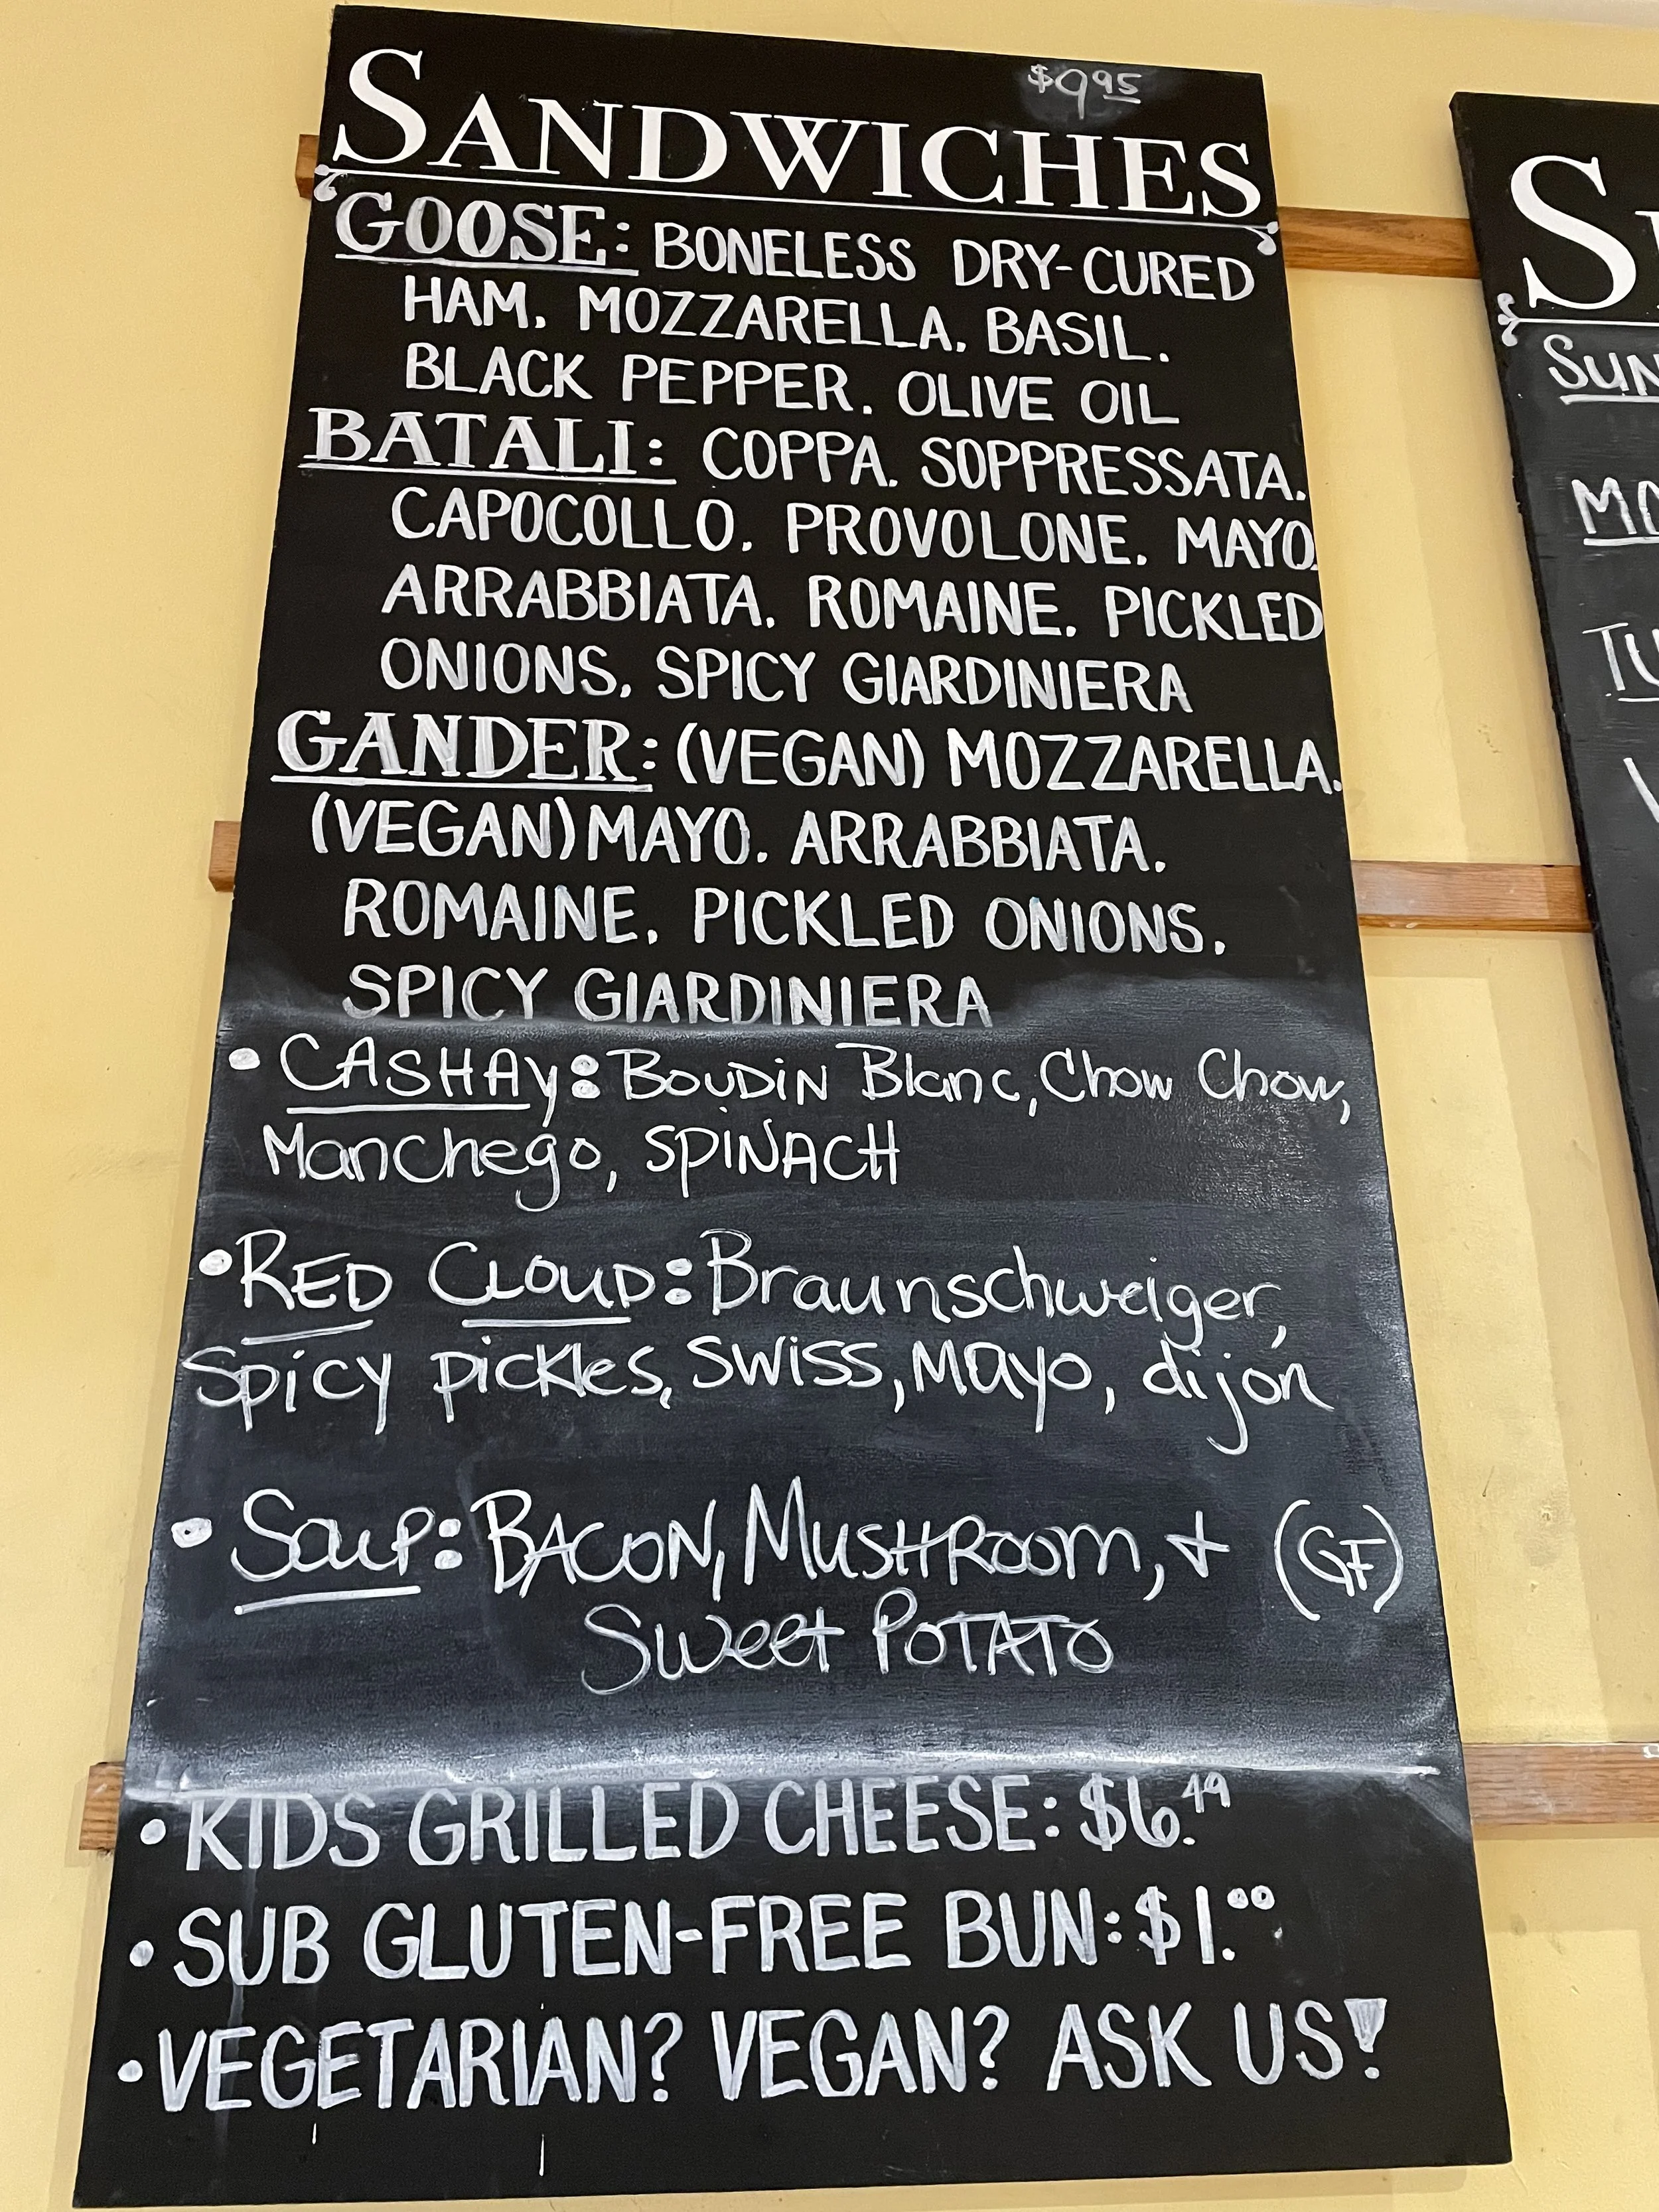 $9.95
SANDWICHES
GOOSE: BONELESS DRY-CURED
HAM. MOZZARELLA. BASIL.
BLACK PEPPER. OLIVE OIL
BATALI: COPPA. SOPPRESSATA.
CAPOCOLLO. PROVOLONE. MAYO.
ARRABBIATA. ROMAINE. PICKLED
ONIONS. SPICY GIARDINIERA
GANDER: (VEGAN) MOZZARELLA.
(VEGAN) MAYO. ARRABBIATA.
ROMAINE. PICKLED ONIONS.
SPICY GIARDINIERA
• CASHAY: BOUDIN Blanc, Chow Chow,
Manchego, SPINACH
• RED CLOUD: Braunschweiger,
Spicy pickles, SWISS, MAYO, dijon
• Soup: BACON, MUSHROOM, + (GF)
Sweet POTATO
• KIDS GRILLED CHEESE: $6.49
• SUB GLUTEN-FREE BUN: $1.00
• VEGETARIAN? VEGAN? ASK US!
SUN
TU